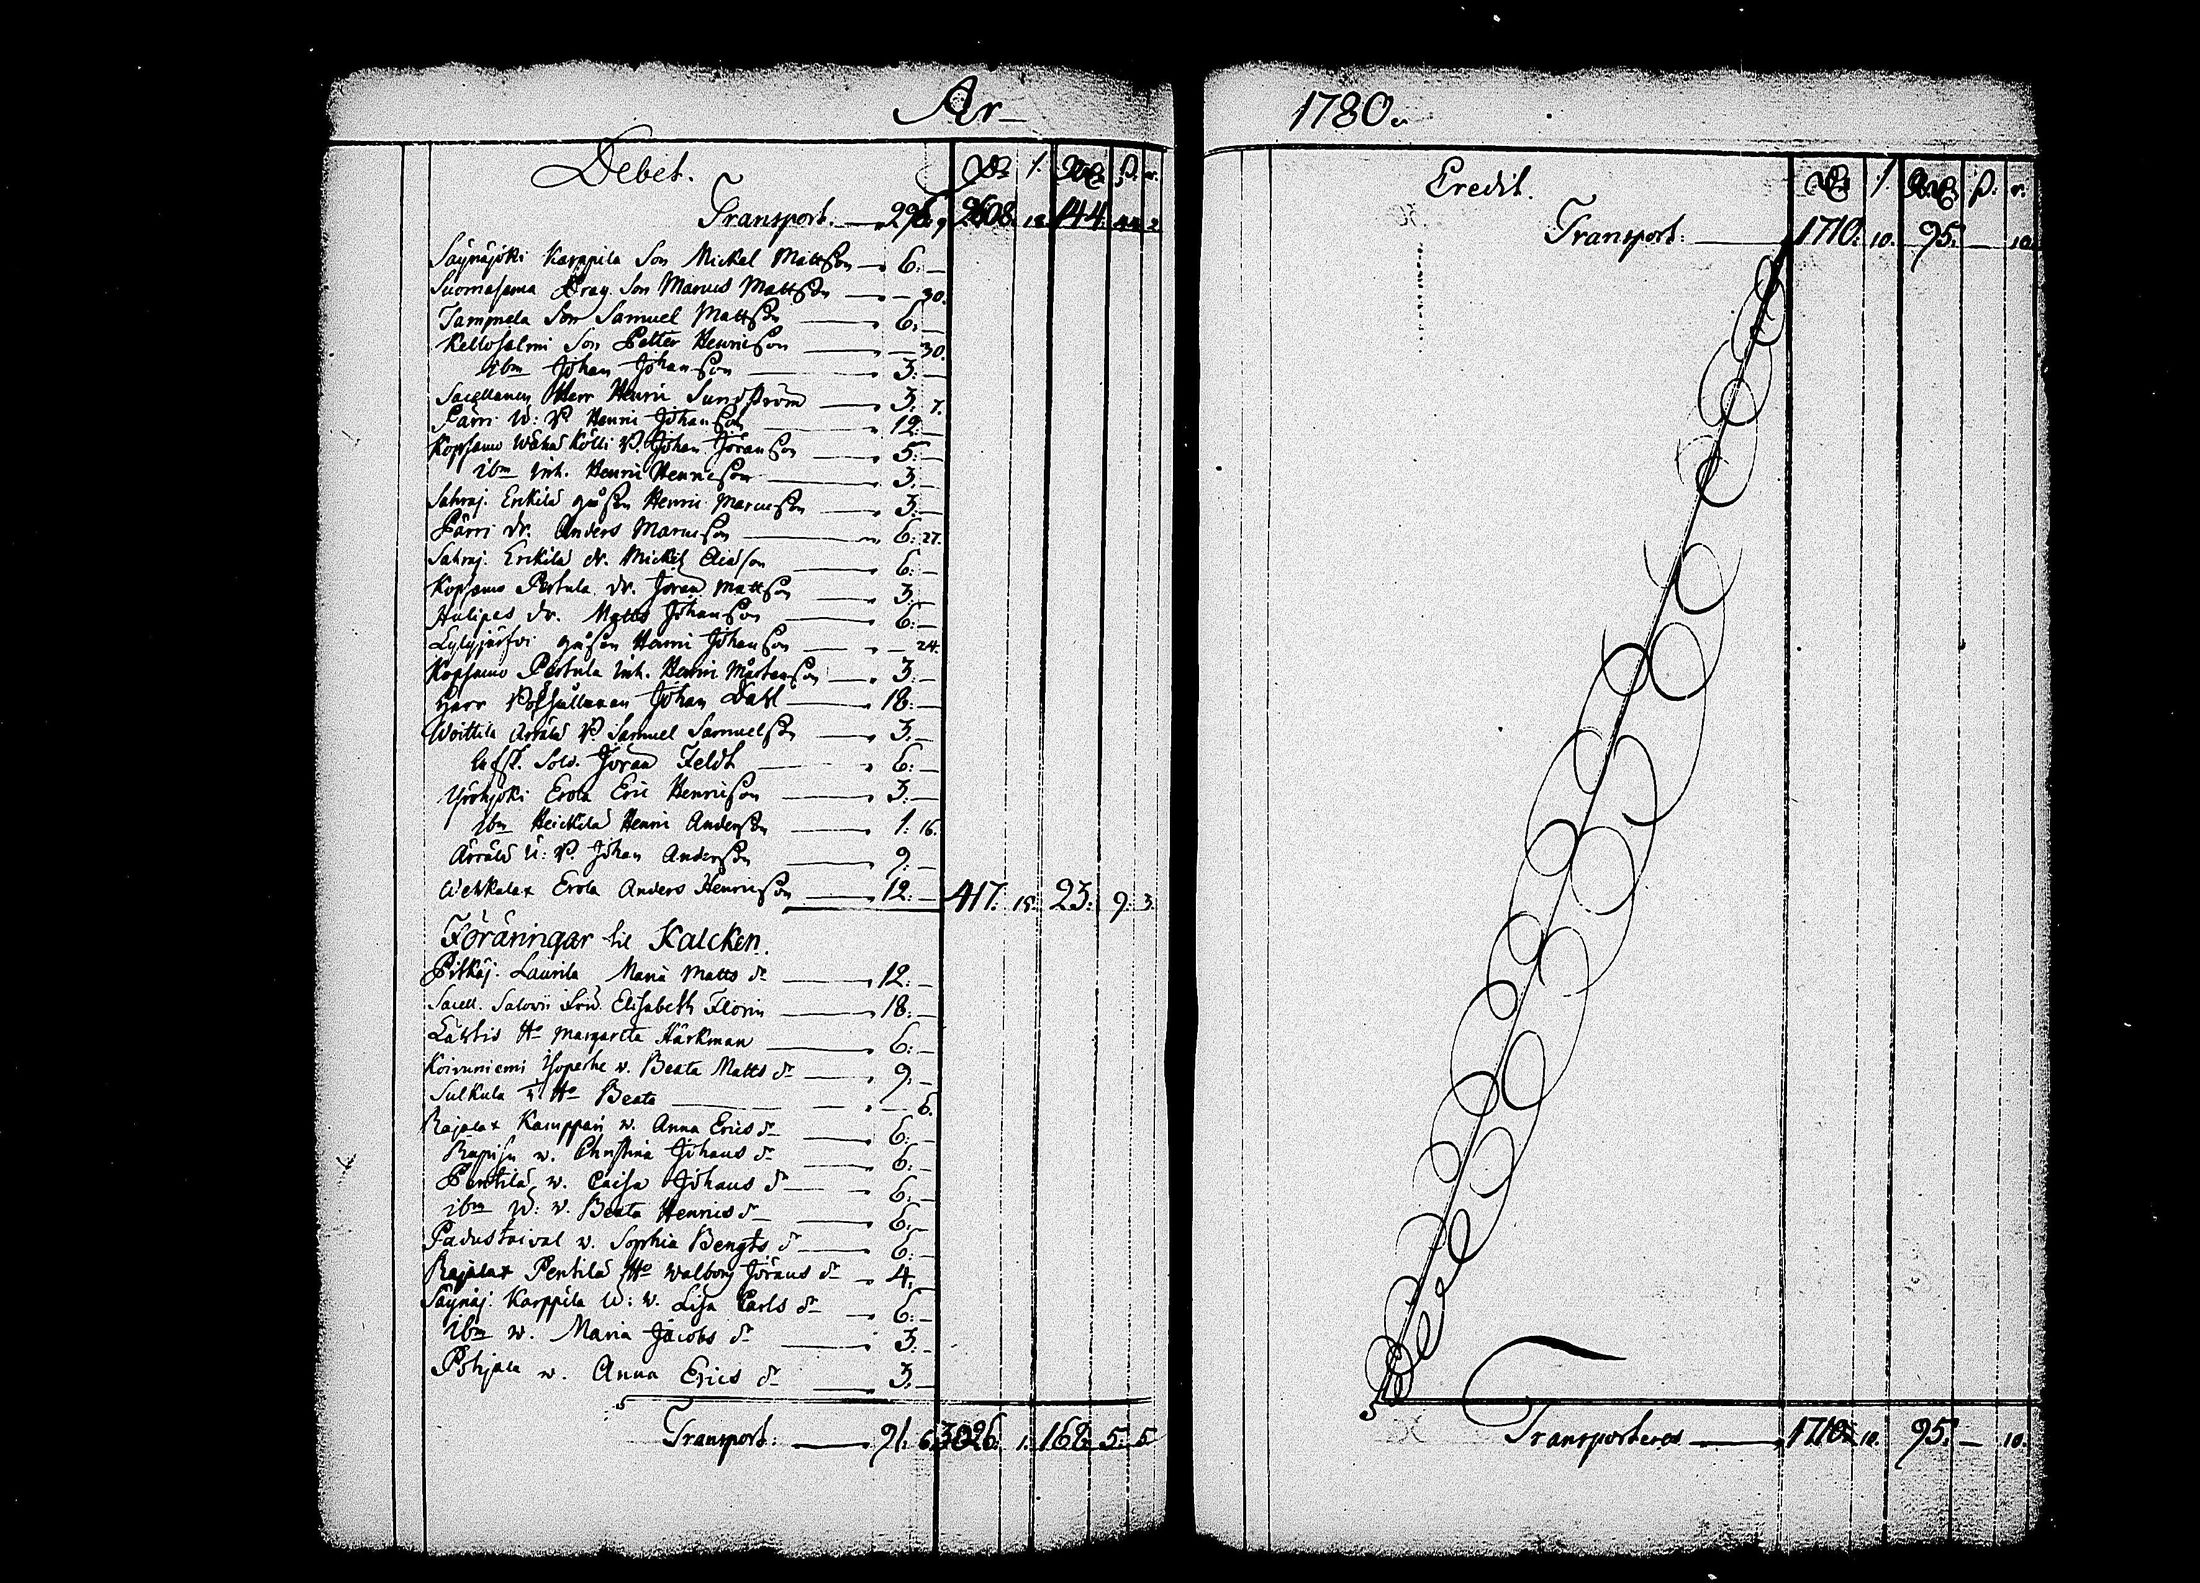 År 1780.
Debet.
Transport. 296: 9. 2608. 18. 144: 44. 2
Säynäjoki Karppila Son Mickel Mattsson 6: —
Suomasema Drag. Son Marcus Mattsson — 30.
Tampnela Son Samuel Mattsson 6: —
Kellosalmi Son Petter Henricsson — 30.
ibm Johan Johansson 3: —
Sacellanen Herr Henric Sundström 3: 7.
Pärri W: P. Henric Johansson 12: —
Kopsamo Wähä Kölli P. Johan Jöransson 5: —
ibm inh. Henric Henricsson 3: —
Sahraj. Erkilä gossen Henric Marcusson 3: —
Pärri dr. Anders Marcusson 6: 27.
Sahraj. Erckilä dr. Mickel Eliasson 6: —
Kopsamo Pertula dr. Jöran Mattsson 3: —
Hulipas dr. Matts Johansson 6: —
Lylyjärfvi gossen Henric Johansson — 24.
Kopsamo Pertula inh. Henric Mårtensson 3: —
Herr Johan Dahl 18: —
Woittila Arrälä P. Samuel Samuelsson 3: —
Afsk. Sold. Jöran Feldt 6: —
Yröhjoki Erola Eric Henricsson 3: —
ibm Heickilä Henric Andersson 1: 16.
Arrälä U: P. Johan Andersson 9: —
Wehkalax Erola Anders Henricsson 12: — 417. 15. 23: 9: 3.
Föräningar til Kalcken.
Pitkäj. Laurila Maria Matts dr 12: —
Sacell. Salovii Fru Elisabeth Florin 18: —
Lawtis Ho Margareta Härkman 6: —
Koivuniemi Yöperhe w. Beata Matts dr 9: —
Sulkula Ho Beata — 6.
Rajalax Kamppari w. Anna Erics dr 6: —
Rapisu w. Christina Johans dr 6: —
Penttilä w. Caisa Johans dr 6: —
ibm U: w. Beata Henrics dr 6: —
Padustaival w. Sophia Bengts dr 6: —
Rajalax Pentilä Ho Walborg Jörans dr 4: —
Säynäj. Karppila U: w. Lisa Carls dr 6: —
ibm w. Maria Jacobs dr 3: —
Pohjala w. Anna Erics dr 3: —
Transport: 91: 6. 3026: 1. 168: 5: 5
Credit.
Transport: 1710: 10. 95: — 10.
Transporteras 1710: 10. 95: — 10.